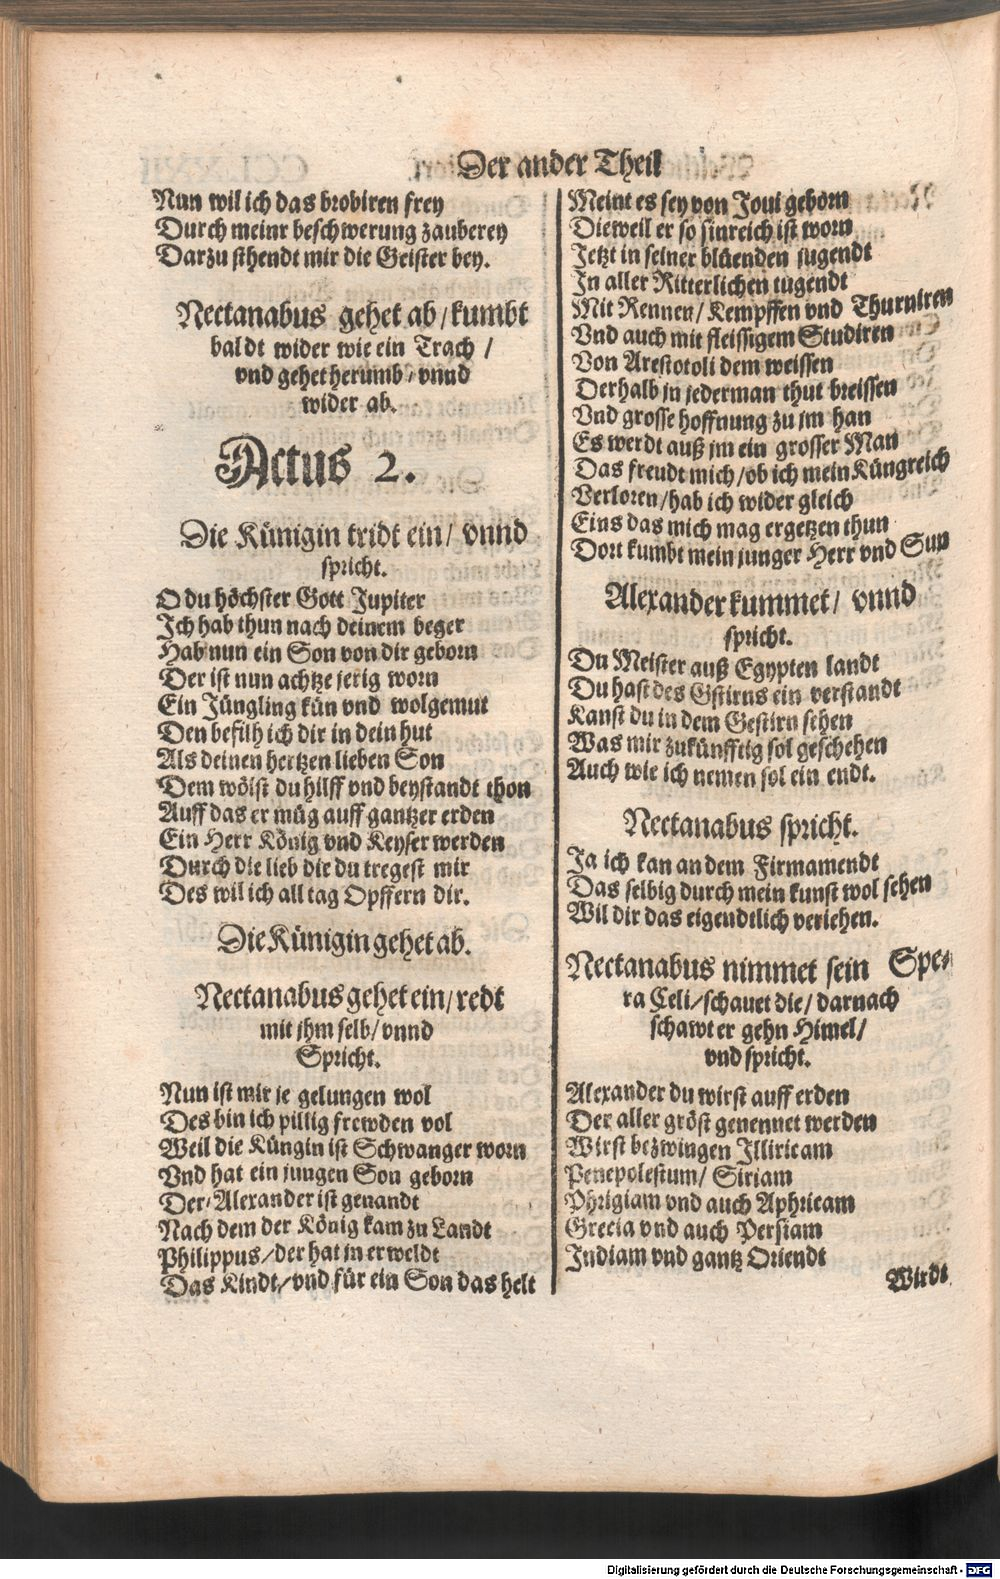 Der ander Theil
Nun wil ich das brobiren frey
Durch meinr beschwerung zauberey
Darzu sthendt mir die Geister bey.
Nectanabus gehet ab / kumbt
baldt wider wie ein Trach /
vnd gehet herumb / vnnd
wider ab.
Actus 2.
Die Künigin tridt ein / vnnd
spricht.
O du höchster Gott Jupiter
Ich hab thun nach deinem beger
Hab nun ein Son von dir geborn
Der ist nun achtze jerig worn
Ein Jüngling kün vnd wolgemut
Den befilh ich dir in dein hut
Als deinen hertzen lieben Son
Dem wölst du hilff vnd beystandt thon
Auff das er müg auff gantzer erden
Ein Herr König vnd Keyser werden
Durch die lieb die du tregest mir
Des wil ich all tag Opffern dir.
Die Künigin gehet ab.
Nectanabus gehet ein / redt
mit jhm selb / vnnd
Spricht.
Nun ist mir je gelungen wol
Des bin ich pillig frewden vol
Weil die Küngin ist Schwanger worn
Vnd hat ein jungen Son geborn
Der / Alexander ist genandt
Nach dem der König kam zu Landt
Philippus / der hat in erweldt
Das Kindt / vnd für ein Son das helt
Meint es sey von Joui geborn
Dieweil er so sinreich ist worn
Jetzt in seiner blüenden jugendt
In aller Ritterlichen tugendt
Mit Rennen / Kempffen vnd Thurniren
Vnd auch mit fleissigem Studiren
Von Arestotoli dem weissen
Derhalb jn jederman thut breissen
Vnd grosse hoffnung zu jm han
Es werdt auß jm ein grosser Man
Das freudt mich / ob ich mein Küngreich
Verloren / hab ich wider gleich
Eins das mich mag ergetzen thun
Dort kumbt mein junger Herr vnd Sun
Alexander kummet / vnnd
spricht.
Du Meister auß Egypten landt
Du hast des Gstirns ein verstandt
Kanst du in dem Gestirn sehen
Was mir zukünfftig sol geschehen
Auch wie ich nemen sol ein endt.
Nectanabus spricht.
Ja ich kan an dem Firmamendt
Das selbig durch mein kunst wol sehen
Wil dir das eigendtlich veriehen.
Nectanabus nimmet sein Spe-
ra Celi / schauet die / darnach
schawt er gehn Himel /
vnd spricht.
Alexander du wirst auff erden
Der aller gröst genennet werden
Wirst bezwingen Illiricam
Penepolestum / Siriam
Phrigiam vnd auch Aphricam
Grecia vnd auch Persiam
Indiam vnd gantz Oriendt
Wirdt
Digitalisierung gefördert durch die Deutsche Forschungsgemeinschaft - DFG